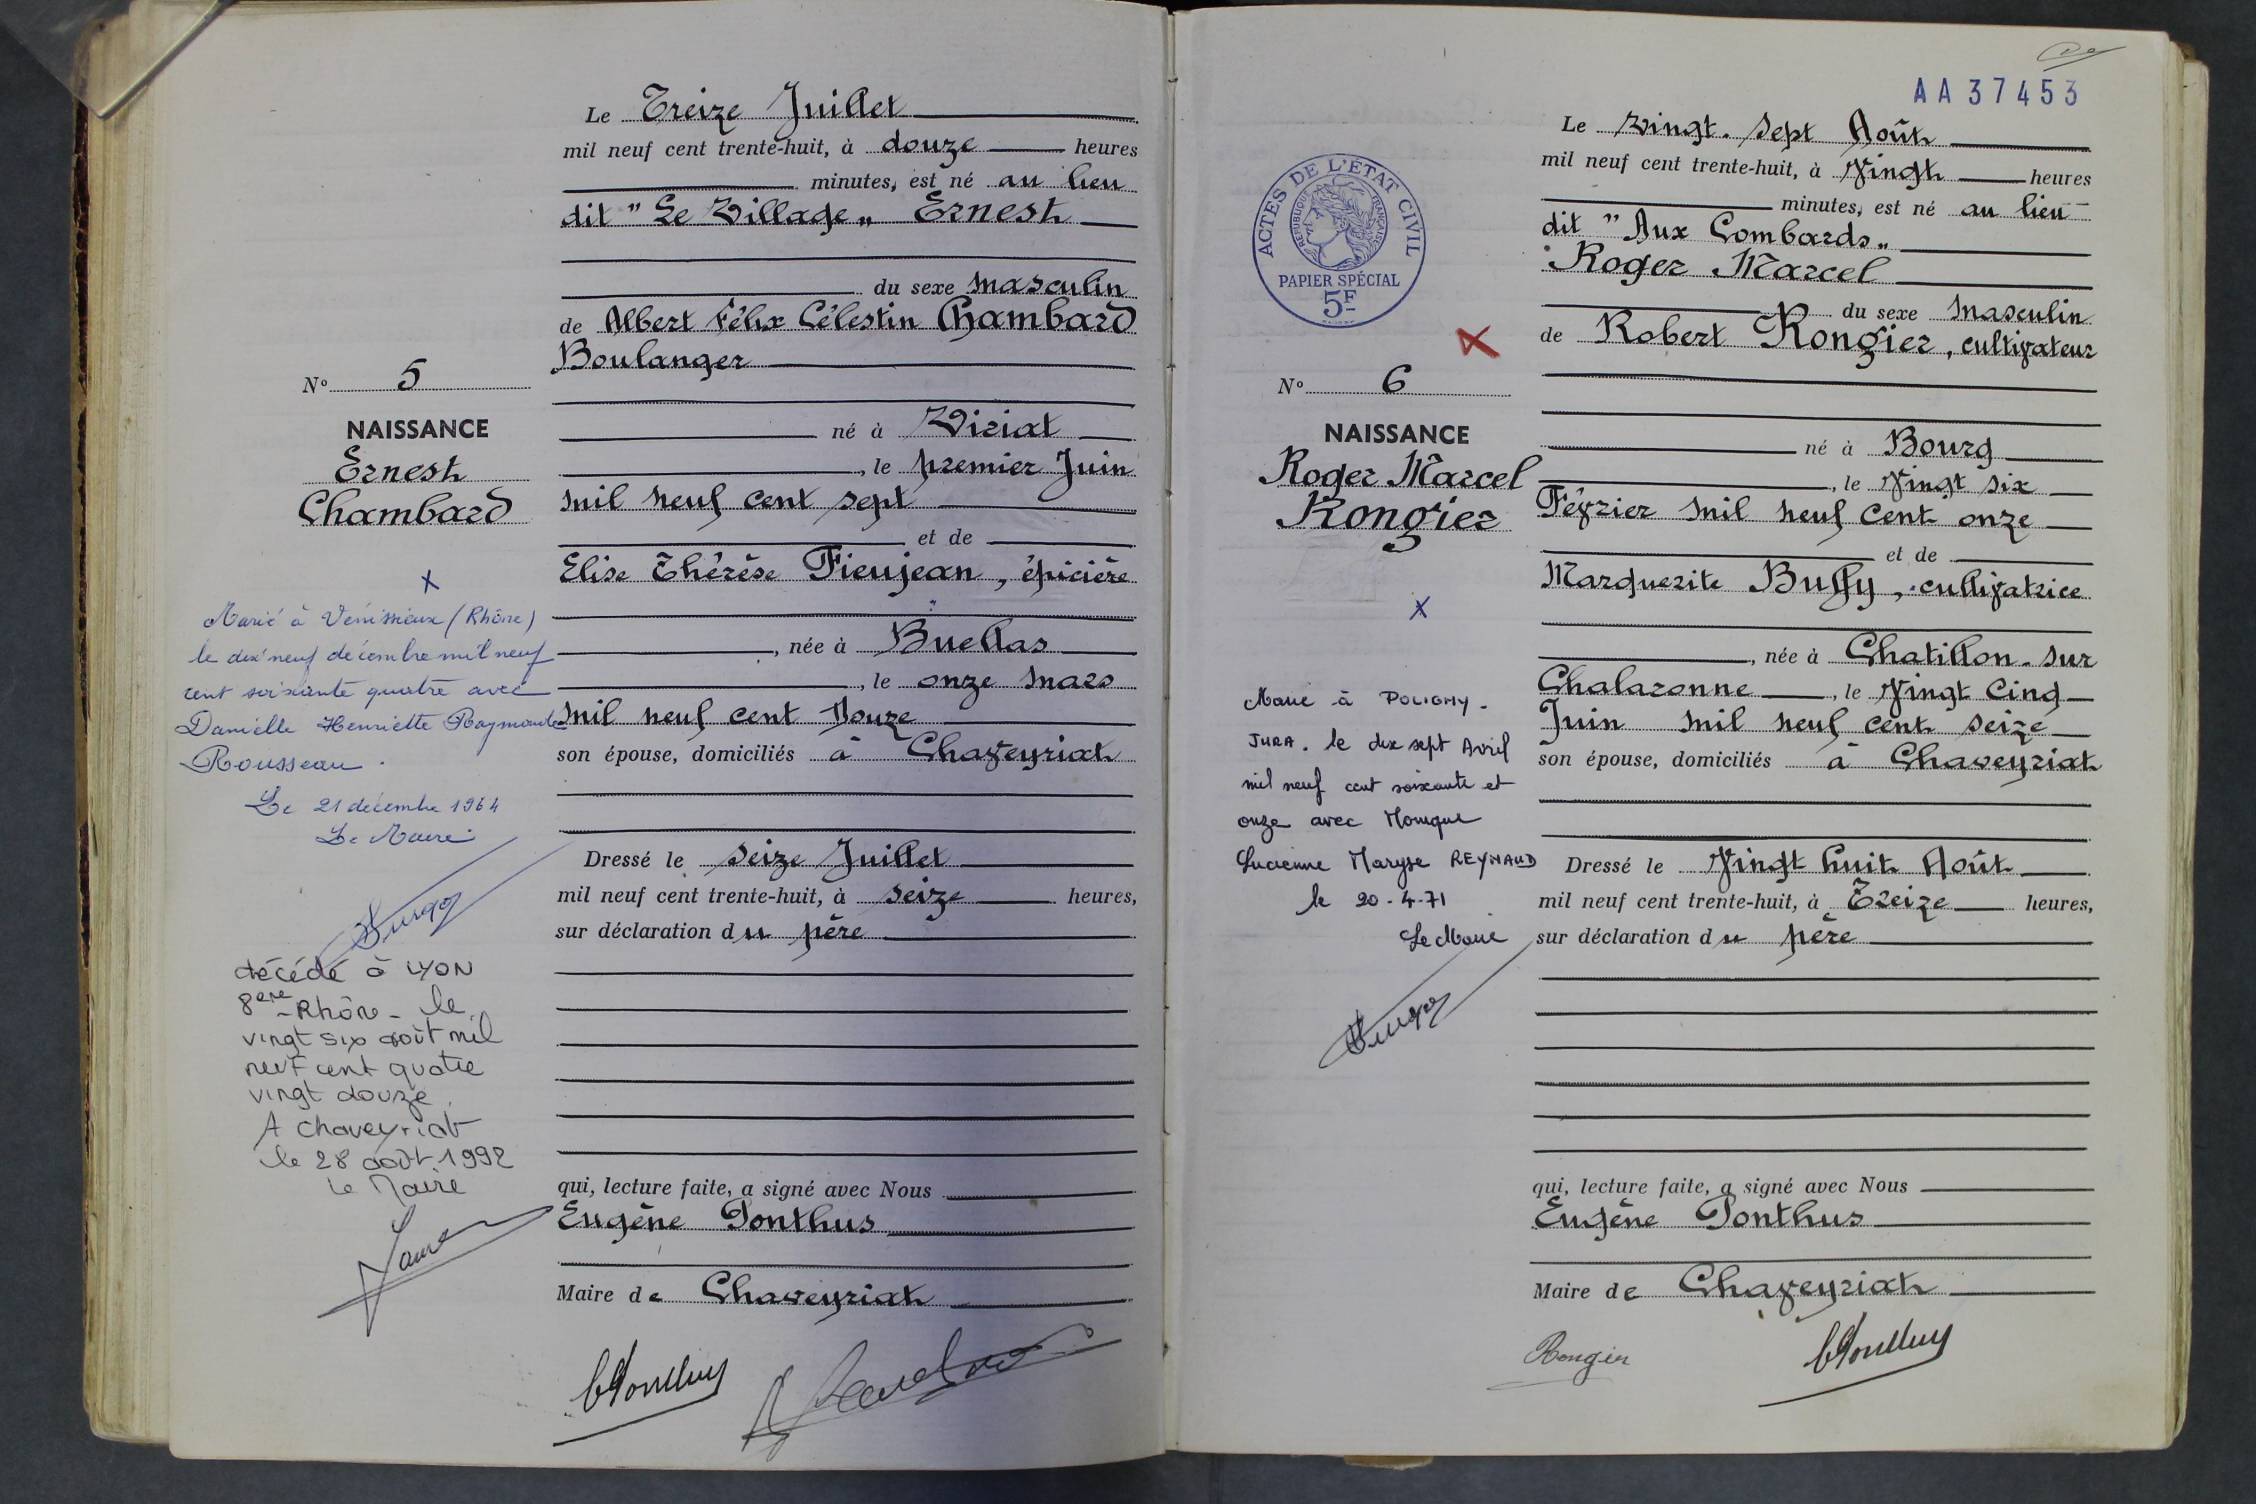 Le Treize Juillet
mil neuf cent trente-huit, à douze heures
minutes, est né au lieu
dit "Le Village" Ernest
du sexe masculin
de Albert Félix Célestin Chambard
Boulanger
né à Viriat
, le premier Juin
mil neuf cent sept
et de
Elise Thérèse Fieujean, épicière
, née à Buellas
, le onze mars
mil neuf cent Douze
son épouse, domiciliés à Chaveyriat
Dressé le seize Juillet
mil neuf cent trente-huit, à seize heures,
sur déclaration du père
qui, lecture faite, a signé avec Nous
Eugène Ponthus
Maire de Chaveyriat
N° 5
NAISSANCE
Ernest
Chambard
X
Marié à Vénissieux (Rhône)
le dix neuf décembre mil neuf
cent soixante quatre avec
Danielle Henriette Raymonde
Rousseau.
Le 21 décembre 1964
Le Maire
décédé à LYON
8ere - Rhône - le
vingt six août mil
neuf cent quatre
vingt douze
A Chaveyriat
le 28 août 1992
Le Maire
AA37453
Le Vingt-sept Août
mil neuf cent trente-huit, à Vingt heures
minutes, est né au lieu
dit "Aux Combards"
Roger Marcel
du sexe masculin
de Robert Rongier, cultivateur
né à Bourg
, le Vingt six
Février mil neuf cent onze
et de
Marguerite Buffy, cultivatrice
, née à Chatillon-sur
Chalaronne, le Vingt Cinq
Juin mil neuf cent seize
son épouse, domiciliés à Chaveyriat
Dressé le Vingt huit Août
mil neuf cent trente-huit, à Treize heures,
sur déclaration du père
qui, lecture faite, a signé avec Nous
Eugène Ponthus
Maire de Chaveyriat
Rongier
ACTES DE L'ÉTAT CIVIL
RÉPUBLIQUE FRANÇAISE
PAPIER SPÉCIAL
5F
N° 6
NAISSANCE
Roger Marcel
Rongier
X
Marié à POLIGNY -
JURA. le dix sept Avril
mil neuf cent soixante et
onze avec Monique
Lucienne Maryse REYNAUD
le 20-4-71
Le Maire